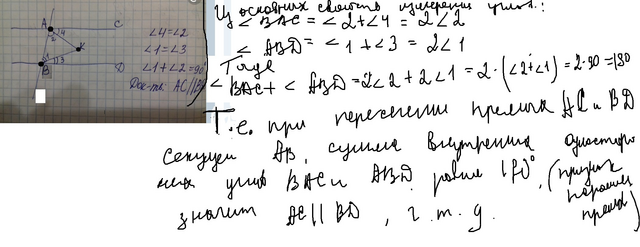 A
C
2
4
K
1
3
B
D
∠4=∠2
∠1=∠3
∠1+∠2=90°
Док-ть: AC||BD
Из основных свойств измерения углов:
∠BAC = ∠2+∠4 = 2∠2
∠ABD = ∠1+∠3 = 2∠1
Тогда
∠BAC + ∠ABD = 2∠2 + 2∠1 = 2·(∠2+∠1) = 2·90 = 180
Т.е. при пересечении прямых AC и BD
секущей AB, сумма внутренних односторон
них углов BAC и ABD равна 180°, (признак
параллел
прямых)
значит AC || BD, ч.т.д.